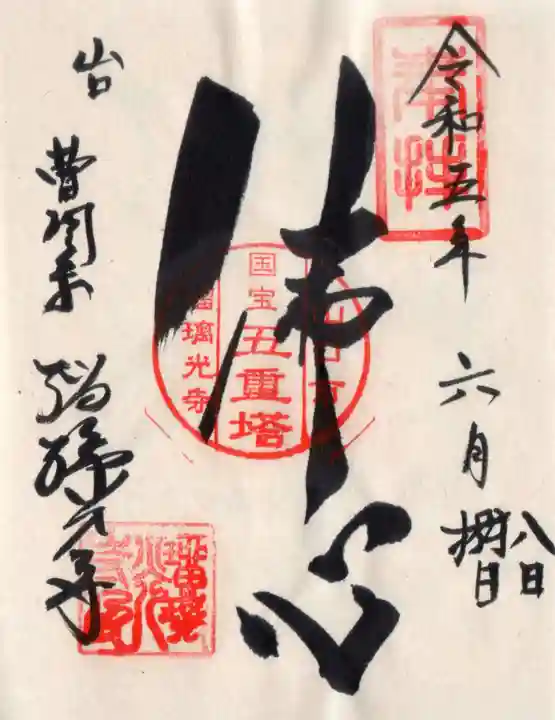 奉拝
令和五年
六月
八日
佛心
山口市
国宝
五重塔
瑠璃光寺
山口
曹洞宗
瑠璃光寺